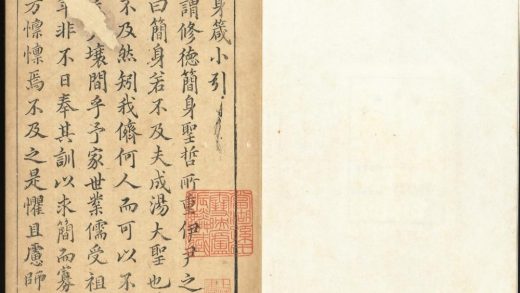 身箴小引
謂修德簡身聖哲所重伊尹之
曰簡身若不及夫成湯大聖也
不及然矧我儕何人而可以不
壤間乎予家世業儒受祖
非不日奉其訓以求簡而寡
方懍懍焉不及之是懼且慮師